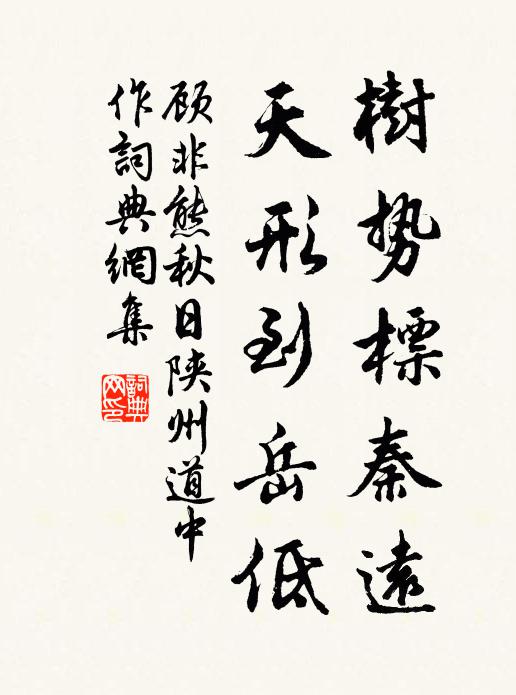 樹势標秦遠
天形到岳低
顾非熊秋日陝州道中
作詞典網集
詞典网印